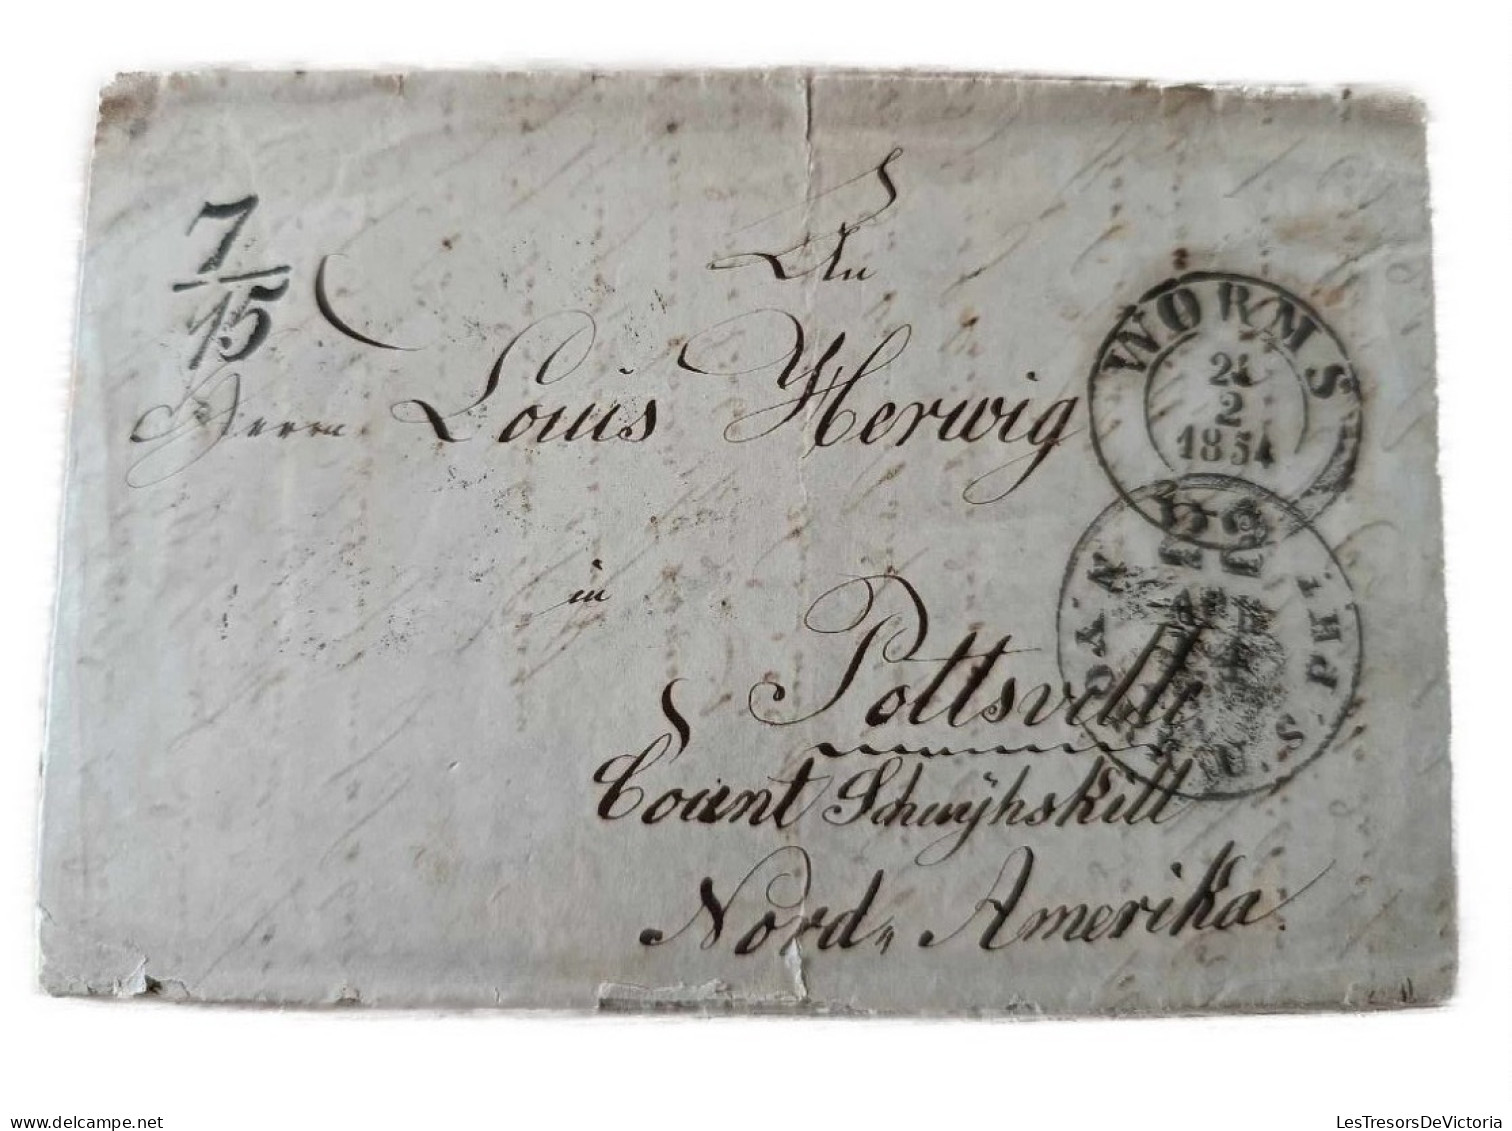 7
15
An
Herrn Louis Herwig
in
Pottsville
Count Schuÿhskill
Nord„ Amerika
WORMS
2
1854
U.S. PKT.
delcampe.net
LesTresorsDeVictoria